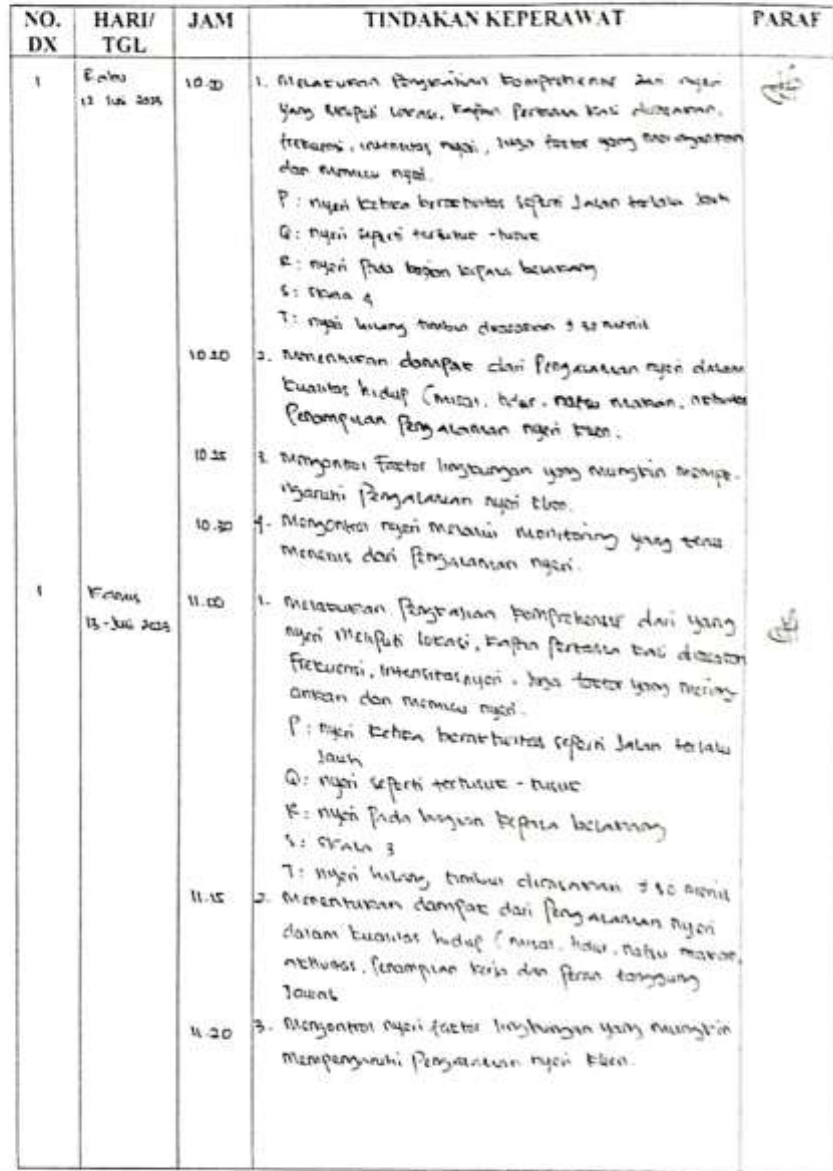 NO. DX
HARI/ TGL
JAM
TINDAKAN KEPERAWAT
PARAF
1
Rabu
12 Juli 2023
10.
1. Melakukan Pengkajian komprehensif dari nyeri
yang meliputi lokasi, kapan Pertama kali dirasakan,
frekuensi, intensitas nyeri, juga factor yang meringankan
dan memicu nyeri.
P : nyeri ketika beraktivitas seperti Jalan terlalu Jauh
Q : nyeri seperti tertusuk - tusuk
R : nyeri Pada bagian kepala belakang
S : Skala 4
T : nyeri hilang timbul dirasakan ± 30 menit
10.20
2. Menentukan dampak dari Pengalaman nyeri dalam
kualitas hidup (misal, tidur, nafsu makan, aktivitas
Penampilan Pengalaman nyeri klien.
10.25
3. Mengontrol Factor lingkungan yang mungkin mempe-
ngaruhi Pengalaman nyeri klien.
10.30
4. Mengontrol nyeri melalui Monitoring yang terus
menerus dari Pengalaman nyeri.
1
Kamis
13 - Juli 2023
11.00
1. Melakukan Pengkajian komprehensif dari yang
nyeri meliputi lokasi, kapan Pertama kali dirasakan
Frekuensi, intensitas nyeri, Juga factor yang mering-
ankan dan memicu nyeri.
P : nyeri ketika beraktivitas seperti Jalan terlalu
Jauh
Q : nyeri seperti tertusuk - tusuk
R : nyeri Pada bagian kepala belakang
S : Skala 3
T : nyeri hilang timbul dirasakan ± 30 menit
11.15
2. Menentukan dampak dari Pengalaman nyeri
dalam kualitas hidup (misal, tidur, nafsu makan,
aktivitas, Penampilan kerja dan Peran tanggung
Jawab
11.20
3. Mengontrol nyeri factor lingkungan yang mungkin
mempengaruhi Pengalaman nyeri klien.